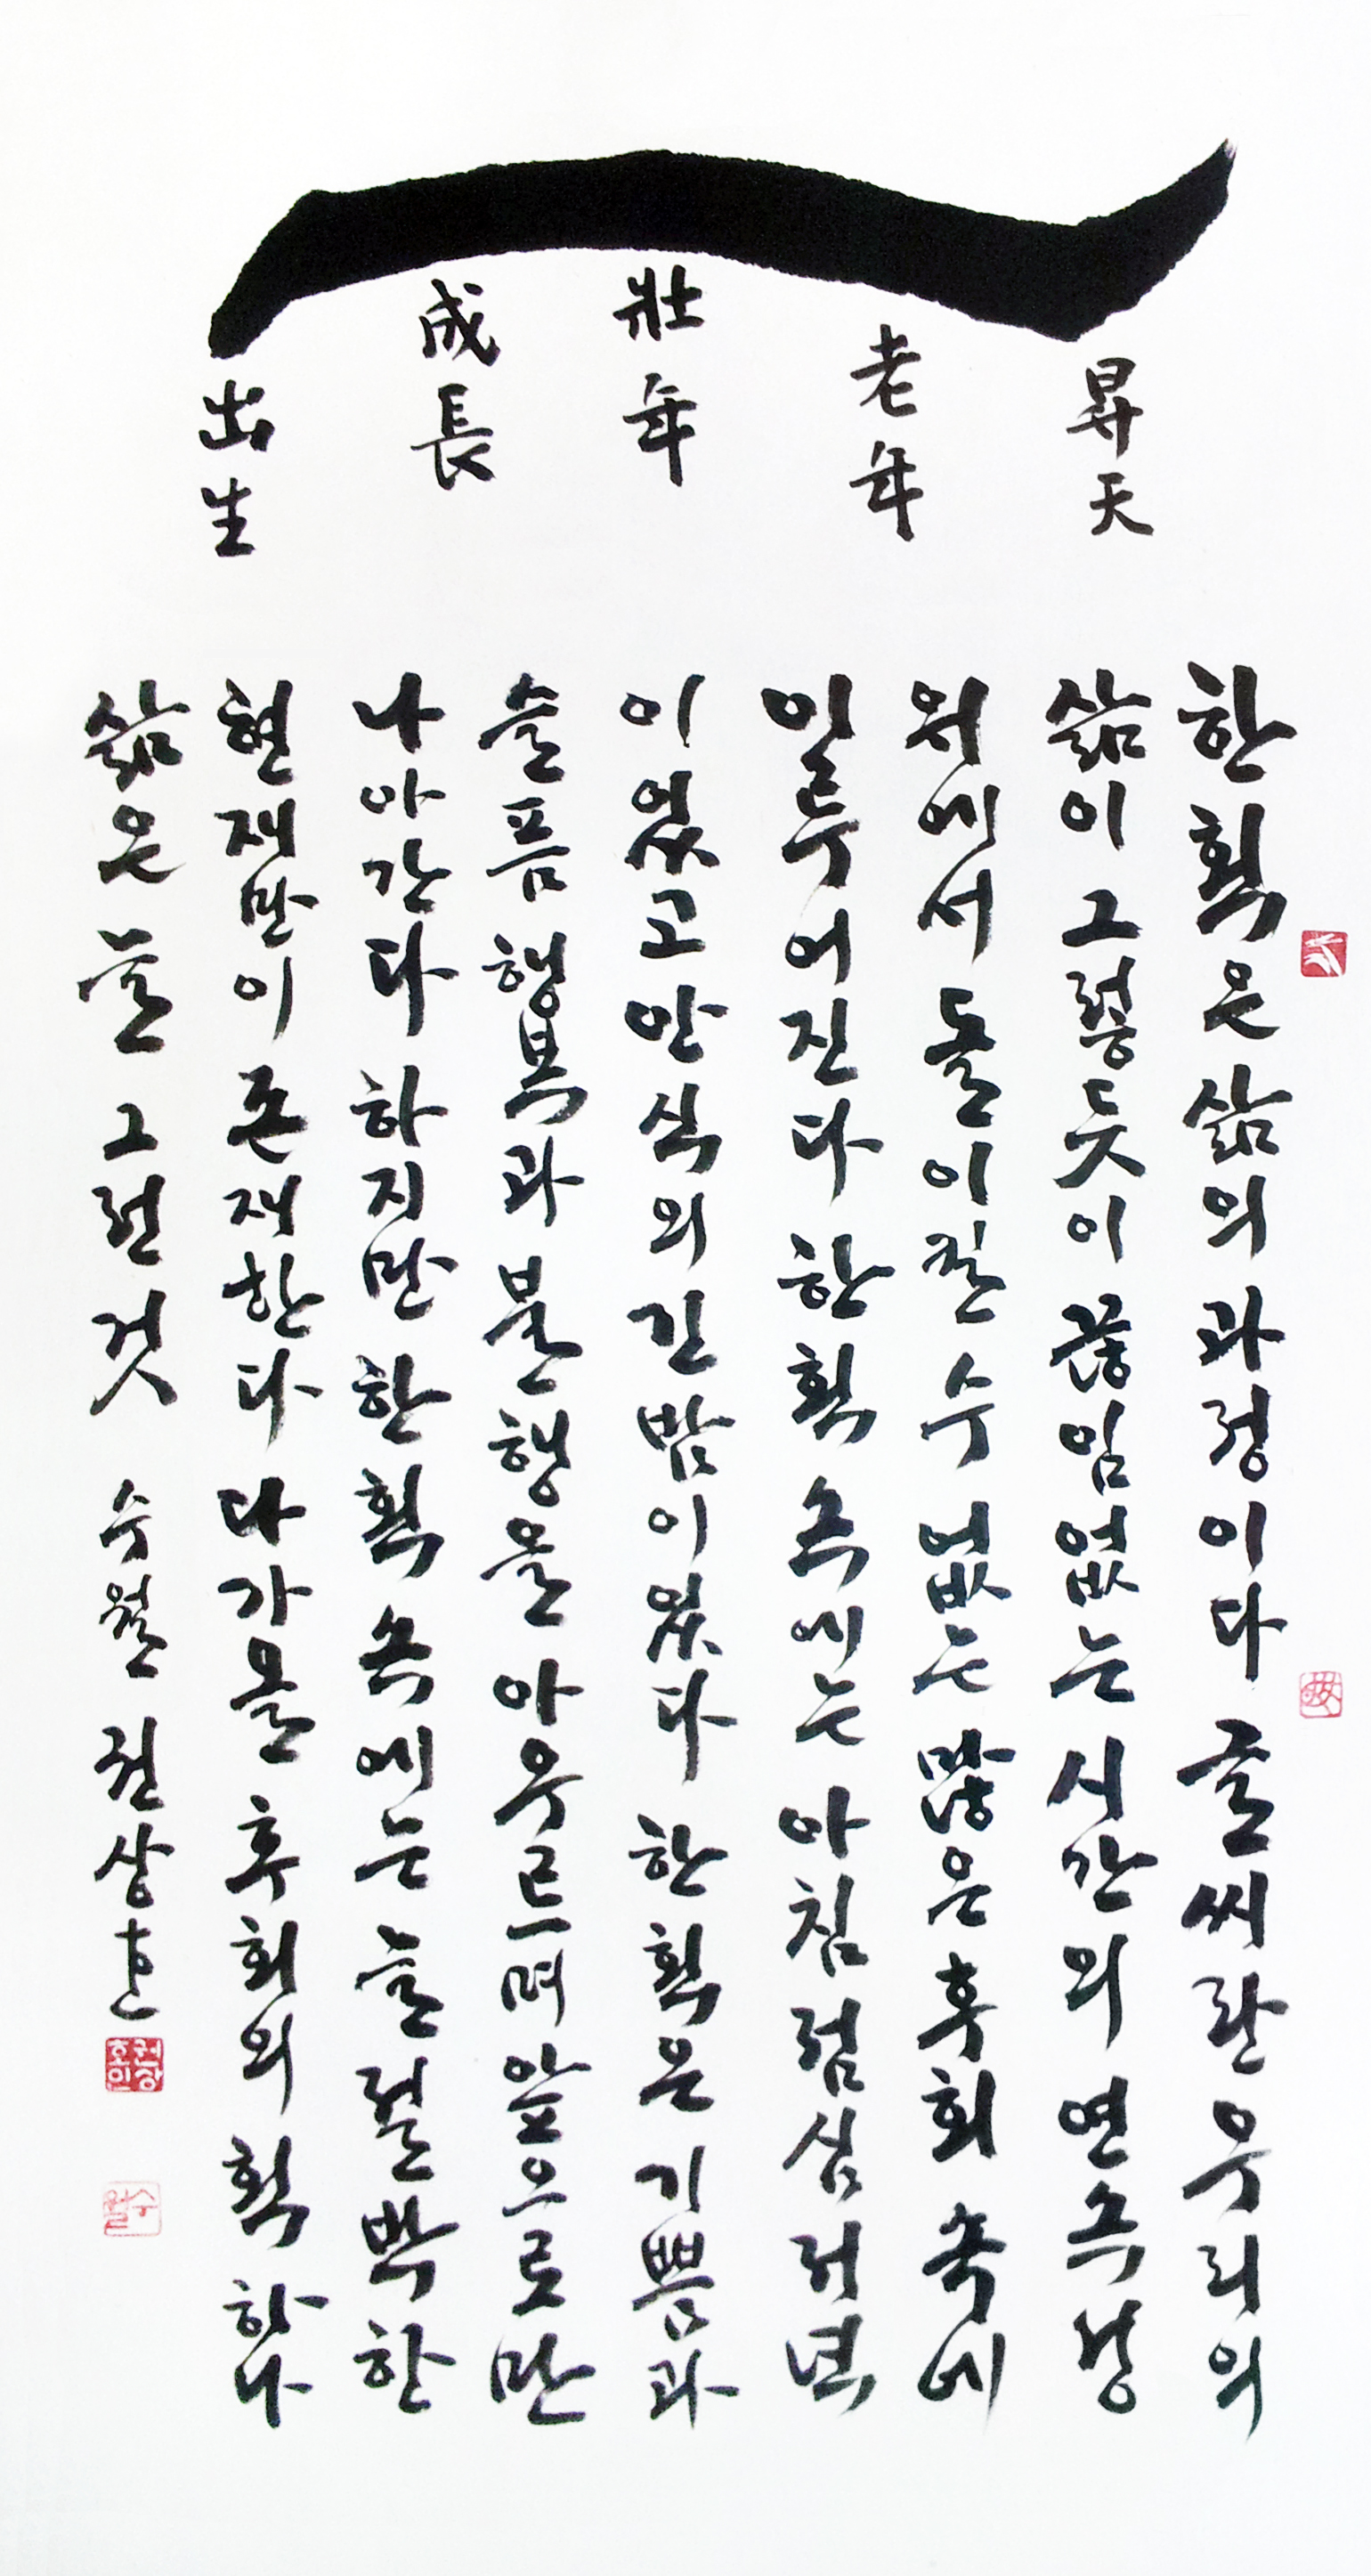 出生
成長
壯年
老年
昇天
한 획은 삶의 과정이다 글씨란 우리의
삶이 그렇듯이 끊임없는 시간의 연속성
위에서 돌이킬 수 없는 많은 후회 속에
이루어진다 한 획 속에는 아침 점심 저녁
이 있고 안식의 긴 밤이 있다 한 획은 기쁨과
슬픔 행복과 불행을 아우르며 앞으로만
나아간다 하지만 한 획 속에는 늘 절박한
현재만이 존재한다 다가올 후회의 획 하나
삶은 늘 그런 것 수월 권상호
수월